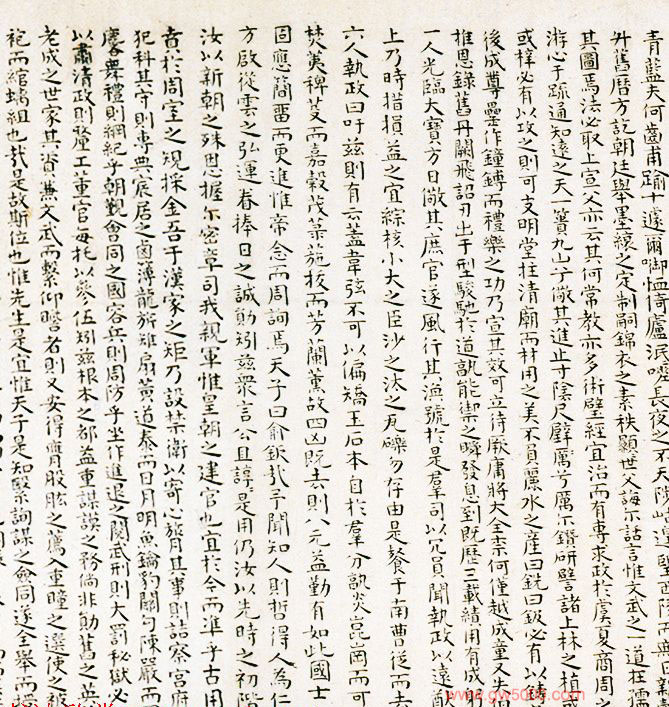 青藍夫何齒甫踰十遽爾啣恤倚廬淚嘆長夜之不天
舛舊曆方說朝廷舉墨縗之定制嗣錦衣之素秩顯世父誨示話言惟文武之一道在儒
其圖焉法必取上宣父亦云其何常教亦多術壁經宜治而有專求政於虞夏商周之
游心于疏通知遠之天一簣九山亏儆其進止寸陰尺璧厲亏厲示鑽研譬諸上林之植
或梓必有以攻之則可支明堂柱清廟而材用之美不負麗水之産曰銑曰鈑必有以
後成尊罍作鐘鎛而禮樂之功乃宣其效可立待厥庸將大全柰何僅越成童又失
推恩錄舊丹闕飛詔刃出于型駿馳於道孰能禦之瞬發息到既歷三載績用有成
一人光臨大寶方日儆其庶官遂風行其渙號於是羣司以冗員聞執政以遠
上乃時措損益之宜綜核小大之臣沙之汰之瓦礫勿存由是餐于南曹從而去
六人執政曰吁茲則有云蓋韋弦不可以偏矯玉石本自於羣分孰炎崑崗而可
焚荑稗芟而嘉穀茂菉葹拔而芳蘭薰故四凶既去則八元益勤有如此國士
固應簡畱而更進惟帝念而周詢焉天子曰俞欽哉予聞知人則哲得人為仁
方啟從雲之弘運眷捧日之誠勛矧茲衆言公且諄是用仍汝以先時之初階
汝以新朝之殊恩握尔密章司我親軍惟皇朝之建官也宜於今而準乎古用
賁於周室之規採金吾于漢家之矩乃設禁衛以寄心膂其事則詰察宮府
犯科其守則專典宸居之鹵薄龍旂雉扇黃道泰而日月明魚鑰豹關勾陳嚴而
麾舞禮則綱紀乎朝覲會同之國容兵則周防乎坐作進退之閱武刑則大罰秘獄必
以肅清政則釐工董官每托以參伍矧茲根本之都益重謀謨之務倘非勛舊之英
老成之世家其資兼文武而繫仰瞻者則又安得膺股肱之薦入重瞳之選使之
袍而綰螭組也哉是故斯位也惟先生是宜惟天子是知毉詢謀之僉同遂全舉而
www.gw5000.com